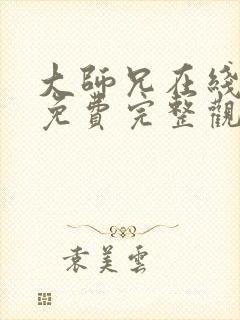 大師兄在綫
免費完整觀
袁美雲